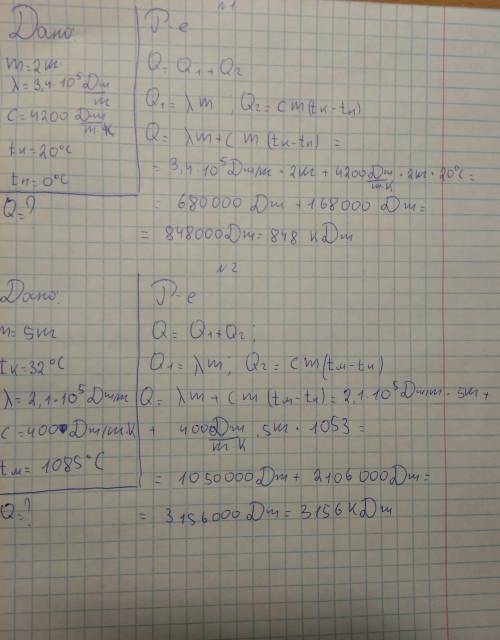 N1
Дано
m=2кг
λ=3,4·10⁵ Дж/кг
C=4200 Дж/кг К
tк=20°C
tн=0°C
Q=?
Р-е
Q=Q₁+Q₂
Q₁=λm, Q₂=Cm(tк-tн)
Q=λm+Cm(tк-tн)=
=3,4·10⁵Дж/кг·2кг+4200Дж/кг К·2кг·20°C=
=680000 Дж+168000 Дж=
=848000Дж=848 кДж
N2
Дано:
m=5кг
tк=32°C
λ=2,1·10⁵Дж/кг
C=400Дж/кгК
tм=1085°C
Q=?
Р-е
Q=Q₁+Q₂;
Q₁=λm; Q₂=Cm(tм-tк)
Q=λm+Cm(tм-tк)=2,1·10⁵Дж/кг·5кг+
+400Дж/кг К·5кг·1053=
=1050000Дж+2106000Дж=
=3156000Дж=3156КДж